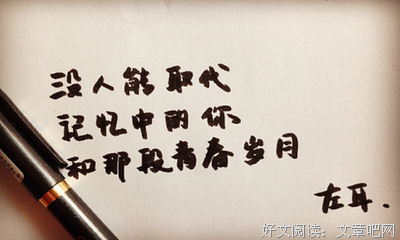 没人能取代
记忆中的你
和那段青春岁月
左耳.
好文阅读：文章吧网